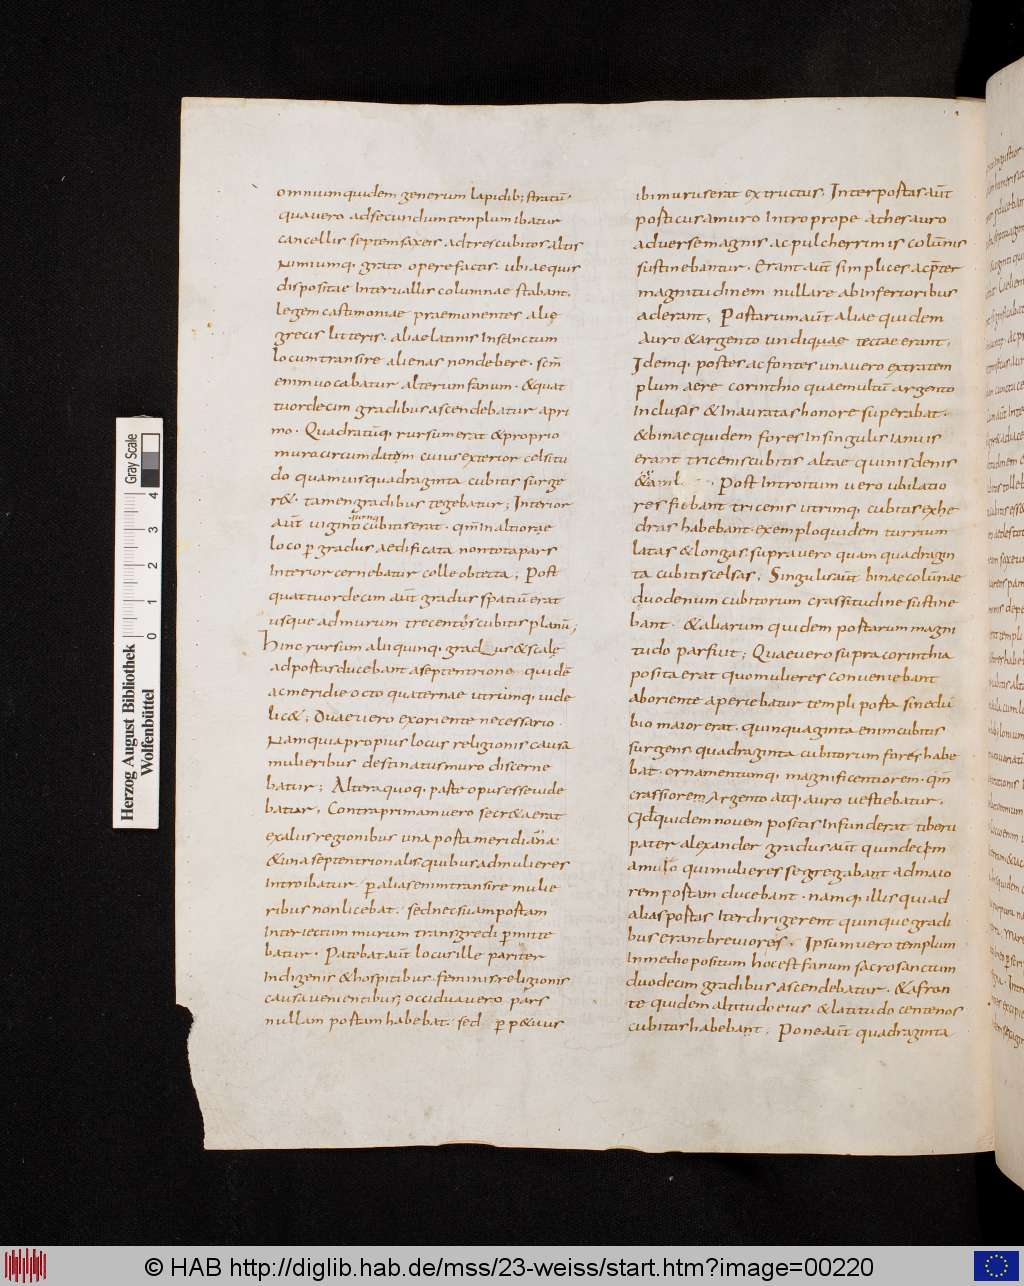 omnium quidem generum lapidib; stratū·
qua vero ad secundum templum ibatur
cancellis septem saxeis ad tres cubitos altis
Nimiumq· grato opere factis· ubi aequis
dispositae Intervallis columnae stabant·
legem castimoniae praemonentes alię
grecis litteris· aliae latinis In sanctum
locum transire alienas non debere· scm̄
enim vocabatur alterum fanum· & quat
tuordecim gradibus ascendebatur a pri
mo· Quadratūq· rursum erat & proprio
muro circumdatum cuius exterior celsitu
do quamvis quadraginta cubitis surge
r&· tamen gradibus tegebatur; Interior
aūt viginti quinq· cubitis erat· qm̄ In altiorae
loco p gradus aedificata non tota pars
Interior cernebatur colle obtecta; Post
quattuordecim aūt gradus spatiū erat
usque ad murum trecentorū cubitis planū;
Hinc rursum alii quinq· gradus & scalę
ad portas ducebant a septentrione quidē
ac meridie octo quaternae utrimq· vide
lic&; Duae vero ex oriente necessario·
Nam quia propius locus religionis causa
mulieribus destinatus muro discerne
batur; Altera quoq· parte opus esse vide
batur· Contra primam vero secr&a erat
ex aliis regionibus una porta meridiana
& una septentrionalis quibus ad mulieres
Introibatur· p alias enim transire mulie
ribus non licebat· sed nec suam portam
Interiectum murum transgredi pmitte
batur· Patebat aūt locus ille pariter
Indigenis & hospitibus· feminis religionis
causa venientibus; occidua vero pars
nullam portam habebat· sed p p&uus
ibi murus erat extructus· Inter portas aūt
porticus a muro Introprope a thesauro
adverse magnis ac pulcherrimis colūnis
sustinebantur· Erant aūt simplices ac p̄ter
magnitudinem nulla re ab Inferioribus
aderant; Portarum aūt aliae quidem
Auro & argento undiquae tectae erant·
Idemq· postes ac fontes una vero extra tem
plum aere corinthio quae multū argento
Inclusas & Inauratas honore superabat·
& binae quidem fores In singulis ianuis
erant tricenis cubitis altae quinis denis
Post Introitum vero ubi latio
res fiebant tricenis utrimq· cubitis exhe
dras habebant exemplo quidem turrium
latas & longas supra vero quam quadragin
ta cubitis celsas; Singulis aūt binae colūnae
duodenum cubitorum crassitudine sustine
bant· & aliarum quidem portarum magni
tudo par fuit; Quae vero supra corinthia
posita erat quo mulieres conveniebant
ab oriente aperiebatur templi porta sine dū
bio maior erat· quinquaginta enim cubitis
surgens quadraginta cubitorum fores habe
bat· ornamentumq· magnificentiorem· qm̄
crassiorem Argento atq· auro vestiebatur·
Qđ quidem novem portis Infunderat tiberii
pater alexander gradus aūt quindecim
a muro qui mulieres segregabant ad maio
rem portam ducebant· namq· illis qui ad
alias portas Iter dirigerent quinque gradi
bus erant breviores· Ipsum vero templum
In medio positum hoc est fanum sacrosanctum
duodecim gradibus ascendebatur· & a fron
te quidem altitudo eius & latitudo centenos
cubitas habebant· Pone aūt quadraginta
Herzog August Bibliothek
Wolfenbüttel
Gray Scale
0 1 2 3 4
© HAB http://diglib.hab.de/mss/23-weiss/start.htm?image=00220